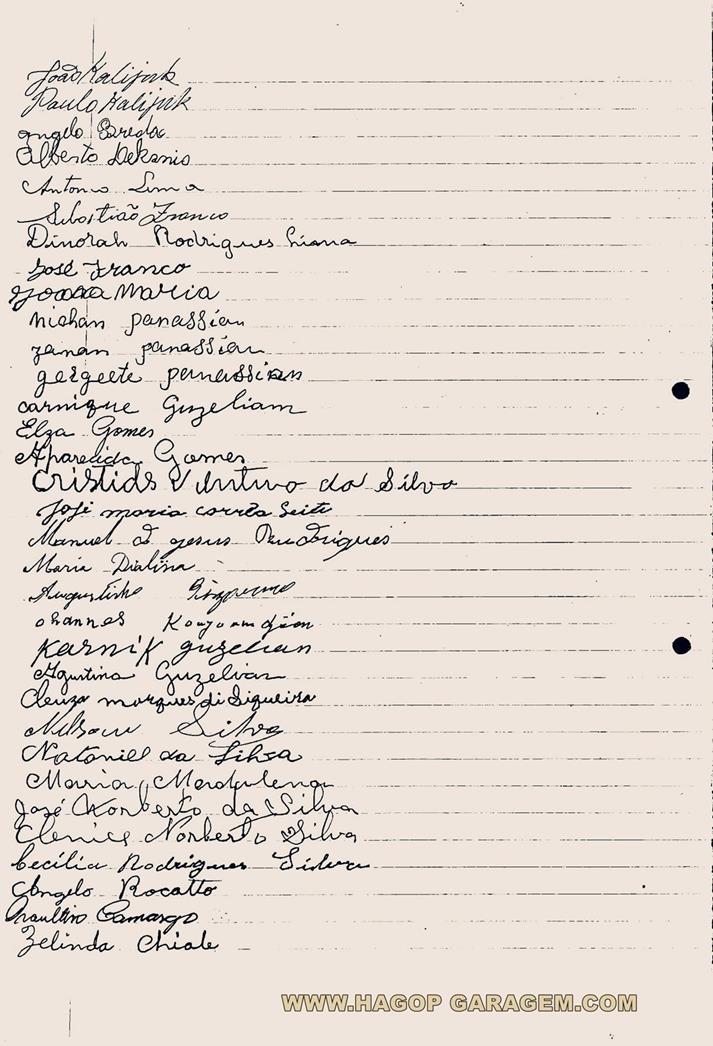 João Kalijnk
Paulo Kalijnk
Angelo
Alberto Dekanio
Antonio Lima
Sebastião Franco
Dinorah Rodrigues Liana
José Franco
Joana Maria
nichan panassian
zanan panassian
gezgeete panassian
carnique Guzeliam
Elza Gomes
Aparecida Gomes
da Silva
José maria corrêa Leite
Manuel d jesus
Maria Dialina
Augustinho
ohannes Kouyoumdjian
Karnik guzelian
Agustina Guzelian
Cleuza marques di Siqueira
Nelson Silva
Nataniel da Silva
Maria Madalena
José Norberto da Silva
Clenice Norberto Silva
Cecília Rodrigues
Angelo Rocatto
Camargo
Zelinda Chiale
WWW.HAGOP GARAGEM.COM